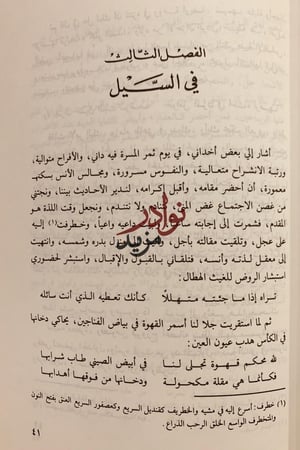 الفصل الثالث
في السيل
أشار إلي بعض أخداني، في يوم ثمر المسرة فيه داني، والأفراح متوالية،
ورتبة الانشراح متعالية، والنفوس مسرورة، ومجالس الأنس بسكنها
معمورة، أن أحضر مقامه، وأقبل إكرامه، لندير الأحاديث بيننا، ونجتني
من غصن الاجتماع غض المنى، ولا نتندم، ونجعل وقت اللذة هو
المقدم، فشمرت إلى إجابته داعياً واعياً، وخطرفت (١) إليه
على عجل، وتلقيت مقالته بأجل بدره وشمسه، وانتهيت
إلى معقل لذته وأنسه، فتلقاني بالقبول والإقبال، واستبشر لحضوري
استبشار الروض للغيث الهطال:
تراه إذا ما جئته متهللاً كأنك تعطيه الذي أنت سائله
ثم لما استقريت جلا لنا أسمر القهوة في بياض الفناجين، يحاكي دخانها
في الكأس هدب عيون العين:
لله محكم قهوة تجلى لنا في أبيض الصيني طاب شرابها
فكأنما هي مقلة مكحولة ودخانها من فوقها أهدابها
(١) خطرف: أسرع إليه في مشيه والخطريف كقنديل السريع وكعصفور السريع العنق بفتح النون
والمتخطرف الواسع الخلق الرحب الذراع.
٤١
نوادر
مزيد